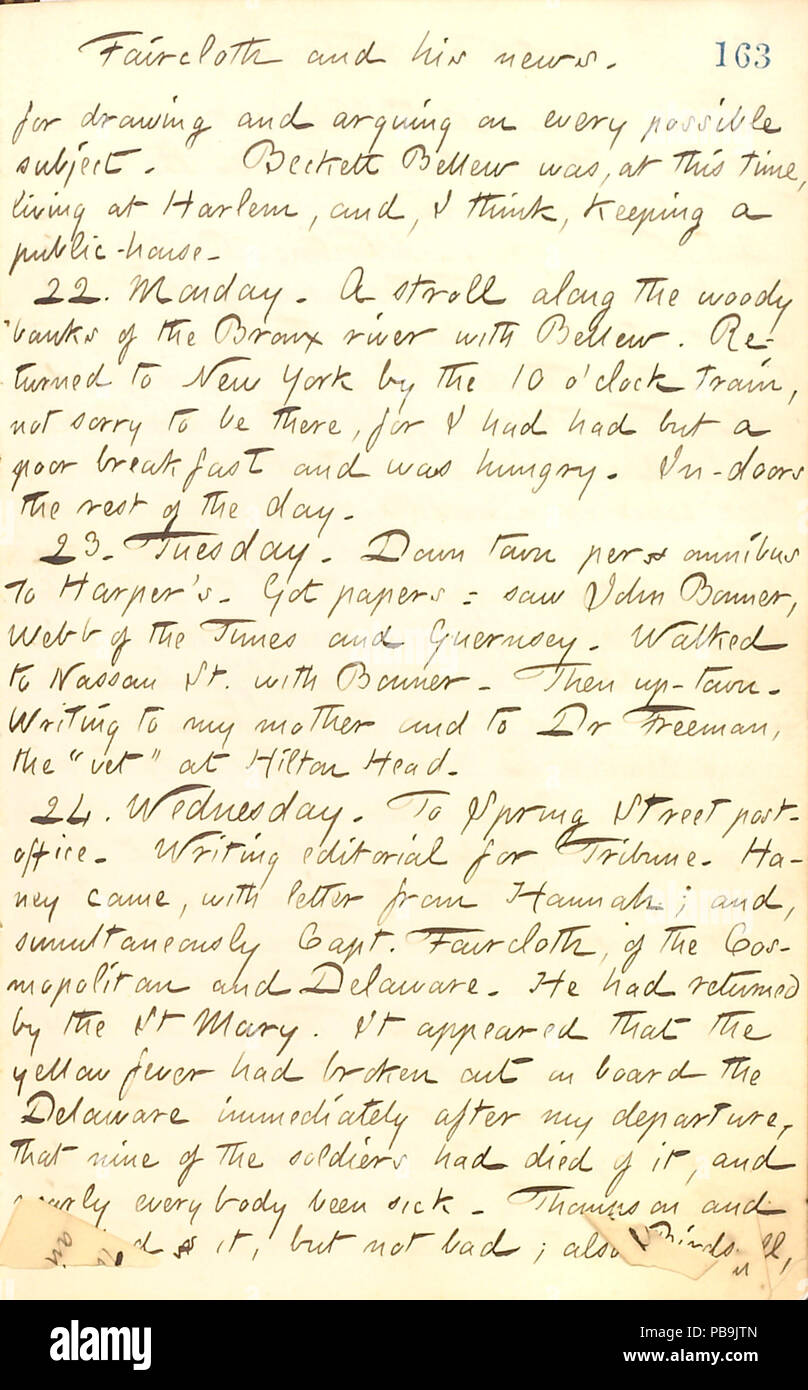 Faircloth and his news. 163
for drawing and arguing on every possible
subject. Beckett Bellew was, at this time,
living at Harlem, and, I think, keeping a
public-house.
22. Monday. A stroll along the woody
banks of the Bronx river with Bellew. Re-
turned to New York by the 10 o'clock train,
not sorry to be there, for I had had but a
poor breakfast and was hungry. In-doors
the rest of the day.
23. Tuesday. Down town per omnibus
to Harper's. Got papers: saw John Bonner,
Webb of the Times and Guernsey. Walked
to Nassau St. with Bonner. Then up-town.
Writing to my mother and to Dr Freeman,
the "vet" at Hilton Head.
24. Wednesday. To Spring Street post-
office. Writing editorial for Tribune. Ha-
ney came, with letter from Hannah; and,
simultaneously Capt. Faircloth, of the Cos-
mopolitan and Delaware. He had returned
by the St Mary. It appeared that the
yellow fever had broken out on board the
Delaware immediately after my departure,
that nine of the soldiers had died of it, and
nearly everybody been sick. Thomson and
it, but not bad; also Birdsall,
alamy
Image ID: PB9JTN
www.alamy.com